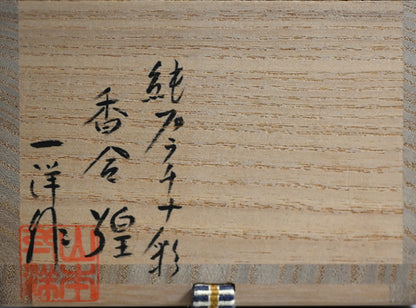 純プラチナ彩
香合 煌
一洋作